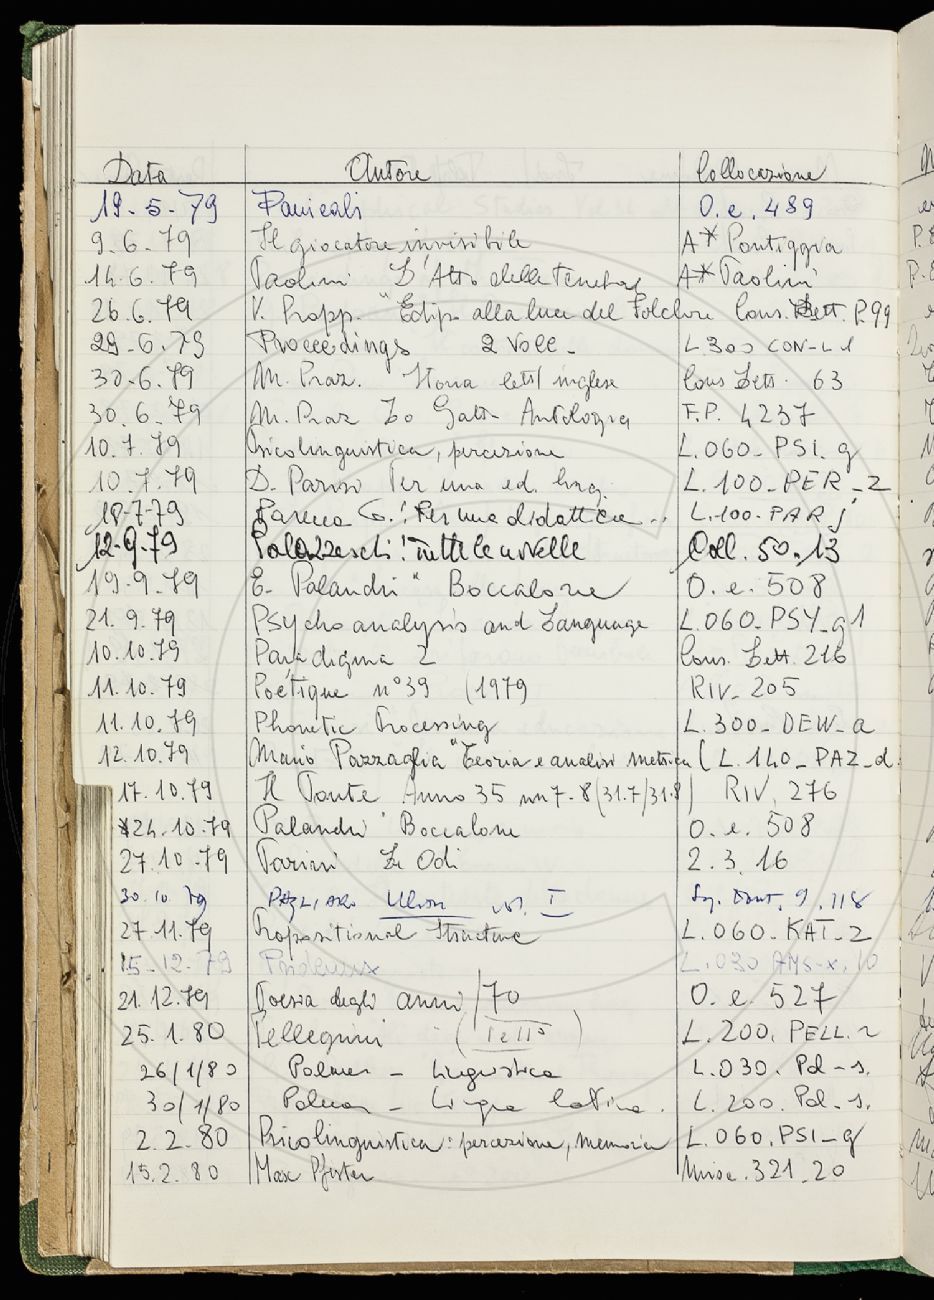 Data Autore Collocazione
19-5-79 Panicali O.e. 489
9.6.79 Il giocatore invisibile A* Pontiggia
14.6.79 Paolini L'Atto della Tenebra A* Paolini
26.6.79 V. Propp. "Edipo alla luce del Folclore Cons. Lett. P.99
29-6.79 Proceedings 2 Voll- L.300 CON-L 1
30-6.79 M. Praz. Storia lett/ inglese Cons Lett. 63
30.6.79 M. Praz La Gatt- Antologia F.P. 4237
10.7.79 Psicolinguistica, percezione L.060-PSI.g
10.7.79 D. Parisi Per una ed. ling. L.100-PER-2
18-7-79 Per una didattica... L.100-PAR j
12-9-79 Palazzeschi! Tutte le novelle Coll. 50.13
19.9.79 E. Palandri " Boccalone O.e. 508
21.9.79 Psychoanalysis and Language L.060-PSY-g1
10.10.79 Paradigma 2 Cons. Lett. 216
11.10.79 Poétique n°39 (1979 RIV. 205
11.10.79 Phonetic Processing L.300-DEW-a
12.10.79 Mario Pazzaglia "Teoria e analisi metrica (L.140-PAZ-d.
17.10.79 Il Ponte Anno 35 nn 7-8 (31.7/31.8) RIV. 276
*24.10.79 Palandri " Boccalone O.e. 508
27.10.79 Parini Le Odi 2.3.16
30.10.79 PAGLIARO Ulisse vol. I 9.118
27.11.79 Propositional Structure L.060-KAT-2
15-12.79 L.030 AMS-x.10
21.12.79 Poesia degli anni /70 O.e. 527
25.1.80 Pellegrini L.200. PELL.r
26/1/80 Palmer - Linguistica L.030. Pal-s.
30/1/80 Palmer - Lingua latina. L.200. Pal-s.
2.2.80 Psicolinguistica: percezione, memoria L.060.PSI-g
15.2.80 Max Pfister Misc. 321.20